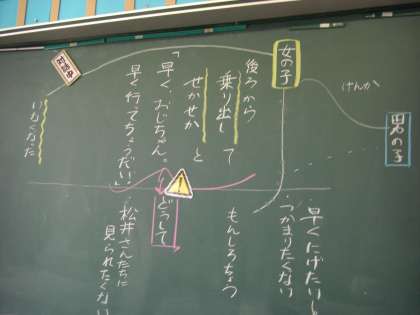 女の子
けんか
男の子
後ろから
乗り出して
せかせかと
「早く、おじちゃん。
早く行ってちょうだい。」
いなくなった
早くにげたいし
つかまりたくない
もんしろちょう
どうして
松井さんたちに
見られたくない